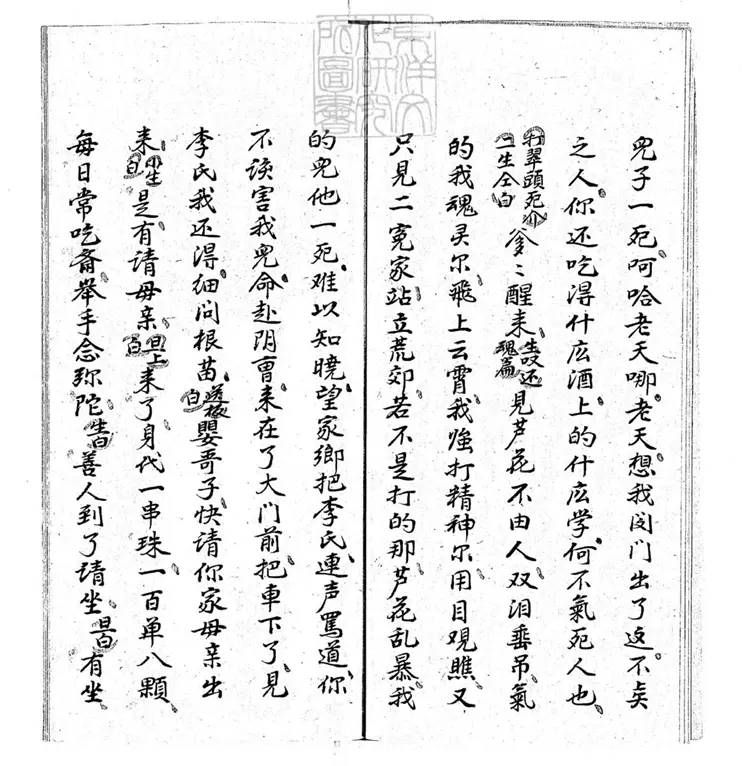 東洋文
化研究
所圖書
兒子一死呵哈老天哪老天想我闵门出了这不肖
之人你还吃得什庅酒上的什庅学何不氣死人也
打翠頭死介二生仝白爹〻醒来生叹还魂篇见芦花不由人双泪垂吊氣
的我魂灵尔飛上云霄我強打精神尔用目观瞧又
只見二冤家站立荒郊若不是打的那芦花乱暴我
的兒他一死难以知曉望家鄉把李氏連声罵道你
不该害我兒命赴阴曺来在了大门前把車下了見
李氏我还得细问根苗送板白嬰哥子快请你家毋亲出
来小生白是有请毋亲旦上白来了身代一串珠一百单八顆
每日常吃斎举手念弥陀生白善人到了请坐旦白有坐